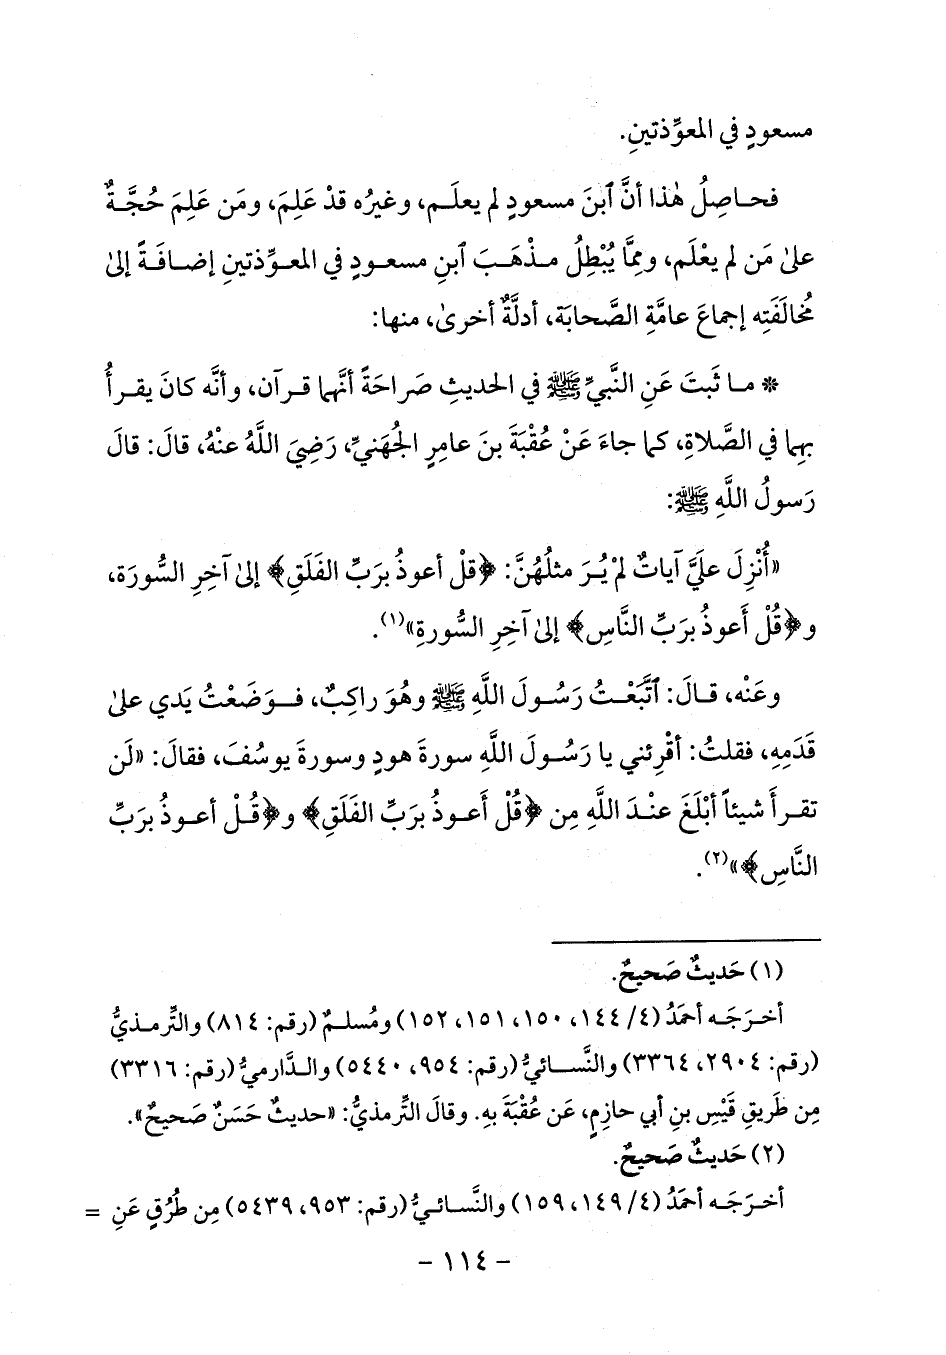 مسعودٍ في المعوِّذتينِ.
فحاصِلُ هٰذا أنَّ ٱبنَ مسعودٍ لم يعلَم، وغيرُه قدْ عَلِمَ، ومَن عَلِمَ حُجَّةٌ
علىٰ مَن لم يعْلَم، وممَّا يُبْطِلُ مذْهَبَ ٱبنِ مسعودٍ في المعوِّذتينِ إضافَةً إلىٰ
مُخالَفَتِه إجماعَ عامَّةِ الصَّحابَة، أدلَّةٌ أخرىٰ، منها:
* ما ثَبتَ عَنِ النَّبيِّ ﷺ في الحديثِ صَراحَةً أنَّهما قرآن، وأنَّه كانَ يقرأُ
بهِما في الصَّلاةِ، كما جاءَ عَنْ عُقْبَةَ بنَ عامرٍ الجُهَنيِّ، رَضِيَ اللَّهُ عنْهُ، قالَ: قالَ
رَسولُ اللَّهِ ﷺ:
«أُنْزِلَ عليَّ آياتٌ لمْ يُرَ مثلُهُنَّ: ﴿قلْ أعوذُ برَبِّ الفَلَقِ﴾ إلىٰ آخِرِ السُّورَة،
و﴿قُلْ أَعوذُ برَبِّ النَّاسِ﴾ إلىٰ آخِرِ السُّورةِ»(١).
وعَنْه، قالَ: ٱتَّبَعْتُ رَسُولَ اللَّهِ ﷺ وهُوَ راكِبٌ، فوَضَعْتُ يَدي علىٰ
قَدَمِهِ، فقلتُ: أقْرِئني يا رَسُولَ اللَّهِ سورةَ هودٍ وسورةَ يوسُفَ، فقالَ: «لَن
تقرأَ شيئاً أبْلَغَ عنْدَ اللَّهِ مِن ﴿قُلْ أَعوذُ برَبِّ الفَلَقِ﴾ و﴿قُلْ أعوذُ برَبِّ
النَّاسِ﴾»(٢).
(١) حَديثٌ صَحيحٌ.
أخرَجَه أحمَدُ (٤/ ١٤٤، ١٥٠، ١٥١، ١٥٢) ومُسلمٌ (رقم: ٨١٤) والتِّرمذيُّ
(رقم: ٢٩٠٤، ٣٣٦٤) والنَّسائيُّ (رقم: ٩٥٤، ٥٤٤٠) والدَّارميُّ (رقم: ٣٣١٦)
مِن طَريقِ قَيْسِ بنِ أبي حازِمٍ، عَن عُقْبَةَ بهِ. وقالَ التِّرمذيُّ: «حديثٌ حَسَنٌ صَحيحٌ».
(٢) حَديثٌ صَحيحٌ.
أخرَجَه أحمَدُ (٤/ ١٤٩، ١٥٩) والنَّسائيُّ (رقم: ٩٥٣، ٥٤٣٩) مِن طُرُقٍ عَنِ =
- ١١٤ -